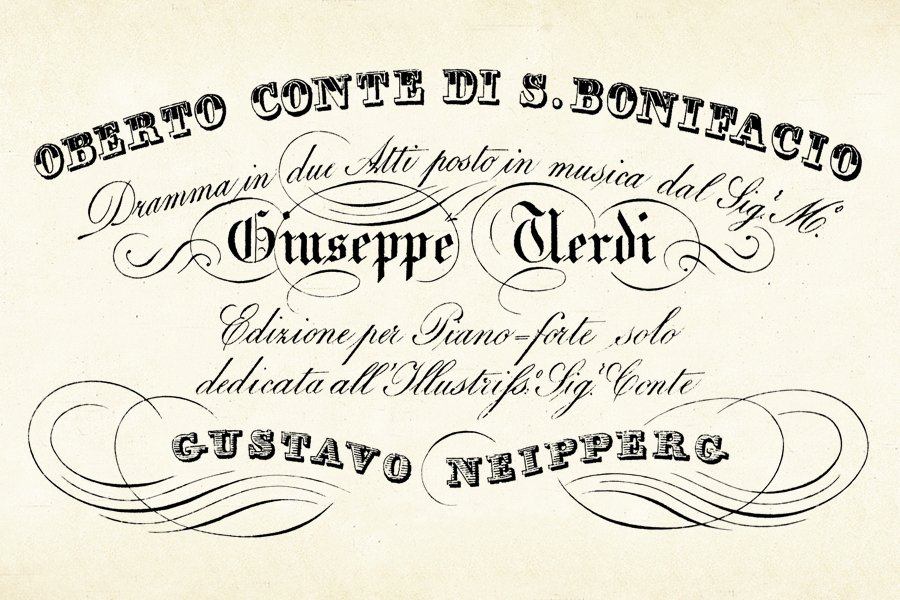 OBERTO CONTE DI S. BONIFACIO
Dramma in due Atti posto in musica dal Sig.r M.o
Giuseppe Verdi
Edizione per Piano=forte solo
dedicata all'Illustrifs.o Sig.r Conte
GUSTAVO NEIPPERG